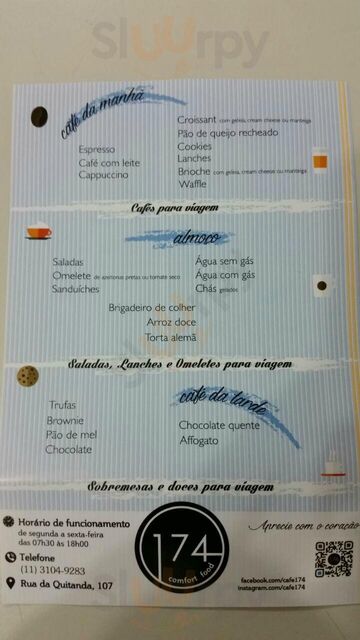 Sluurpy
café da manhã
Espresso
Café com leite
Cappuccino
Croissant com geleia, cream cheese ou manteiga
Pão de queijo recheado
Cookies
Lanches
Brioche com geleia, cream cheese ou manteiga
Waffle
Cafés para viagem
almoço
Saladas
Omelete de azeitonas pretas ou tomate seco
Sanduíches
Água sem gás
Água com gás
Chás gelados
Brigadeiro de colher
Arroz doce
Torta alemã
Saladas, Lanches e Omeletes para viagem
café da tarde
Trufas
Brownie
Pão de mel
Chocolate
Chocolate quente
Affogato
Sobremesas e doces para viagem
Horário de funcionamento
de segunda a sexta-feira
das 07h30 às 18h00
Telefone
(11) 3104-9283
Rua da Quitanda, 107
174
comfort food
Aprecie com o coração
facebook.com/cafe174
instagram.com/cafe174